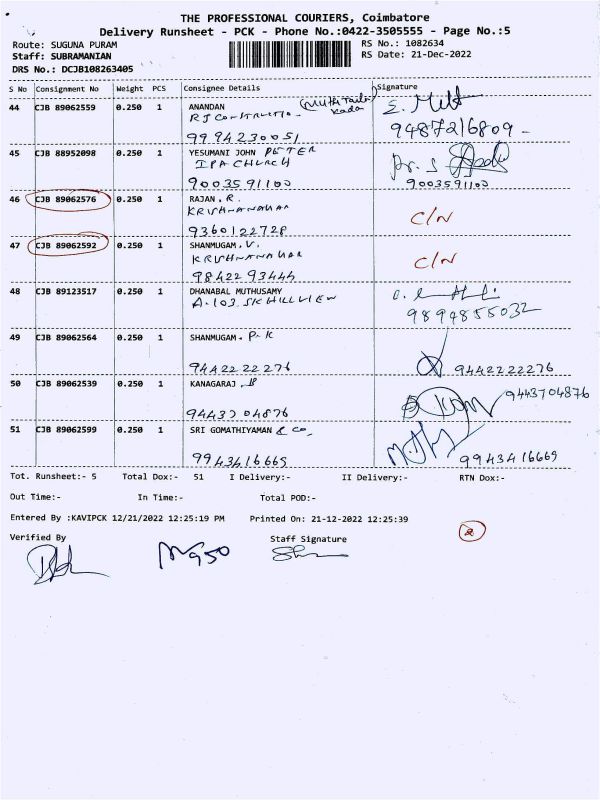 THE PROFESSIONAL COURIERS, Coimbatore
Delivery Runsheet - PCK - Phone No.:0422-3505555 - Page No.:5
Route: SUGUNA PURAM RS No.: 1082634
Staff: SUBRAMANIAN RS Date: 21-Dec-2022
DRS No.: DCJB108263405
S No Consignment No Weight PCS Consignee Details Signature
44 CJB 89062559 0.250 1 ANANDAN
RJ CONSTRUCTIO
9994230051 9487216809
45 CJB 88952098 0.250 1 YESUMANI JOHN PETER
IPA CHURCH
9003591100 9003591100
46 CJB 89062576 0.250 1 RAJAN.R.
KRISHNANAHAR C/N
9360122728
47 CJB 89062592 0.250 1 SHANMUGAM.V.
KRISHNANAHAR C/N
9842293445
48 CJB 89123517 0.250 1 DHANABAL MUTHUSAMY
A-103 SK HILLVIEW
9894855032
49 CJB 89062564 0.250 1 SHANMUGAM. P-K
9442222276 9442222276
50 CJB 89062539 0.250 1 KANAGARAJ
9443704876 9443704876
51 CJB 89062599 0.250 1 SRI GOMATHIYAMAN & CO,
9943416669 9943416669
Tot. Runsheet:- 5 Total Dox:- 51 I Delivery:- II Delivery:- RTN Dox:-
Out Time:- In Time:- Total POD:-
Entered By :KAVIPCK 12/21/2022 12:25:19 PM Printed On: 21-12-2022 12:25:39
2
Verified By Staff Signature